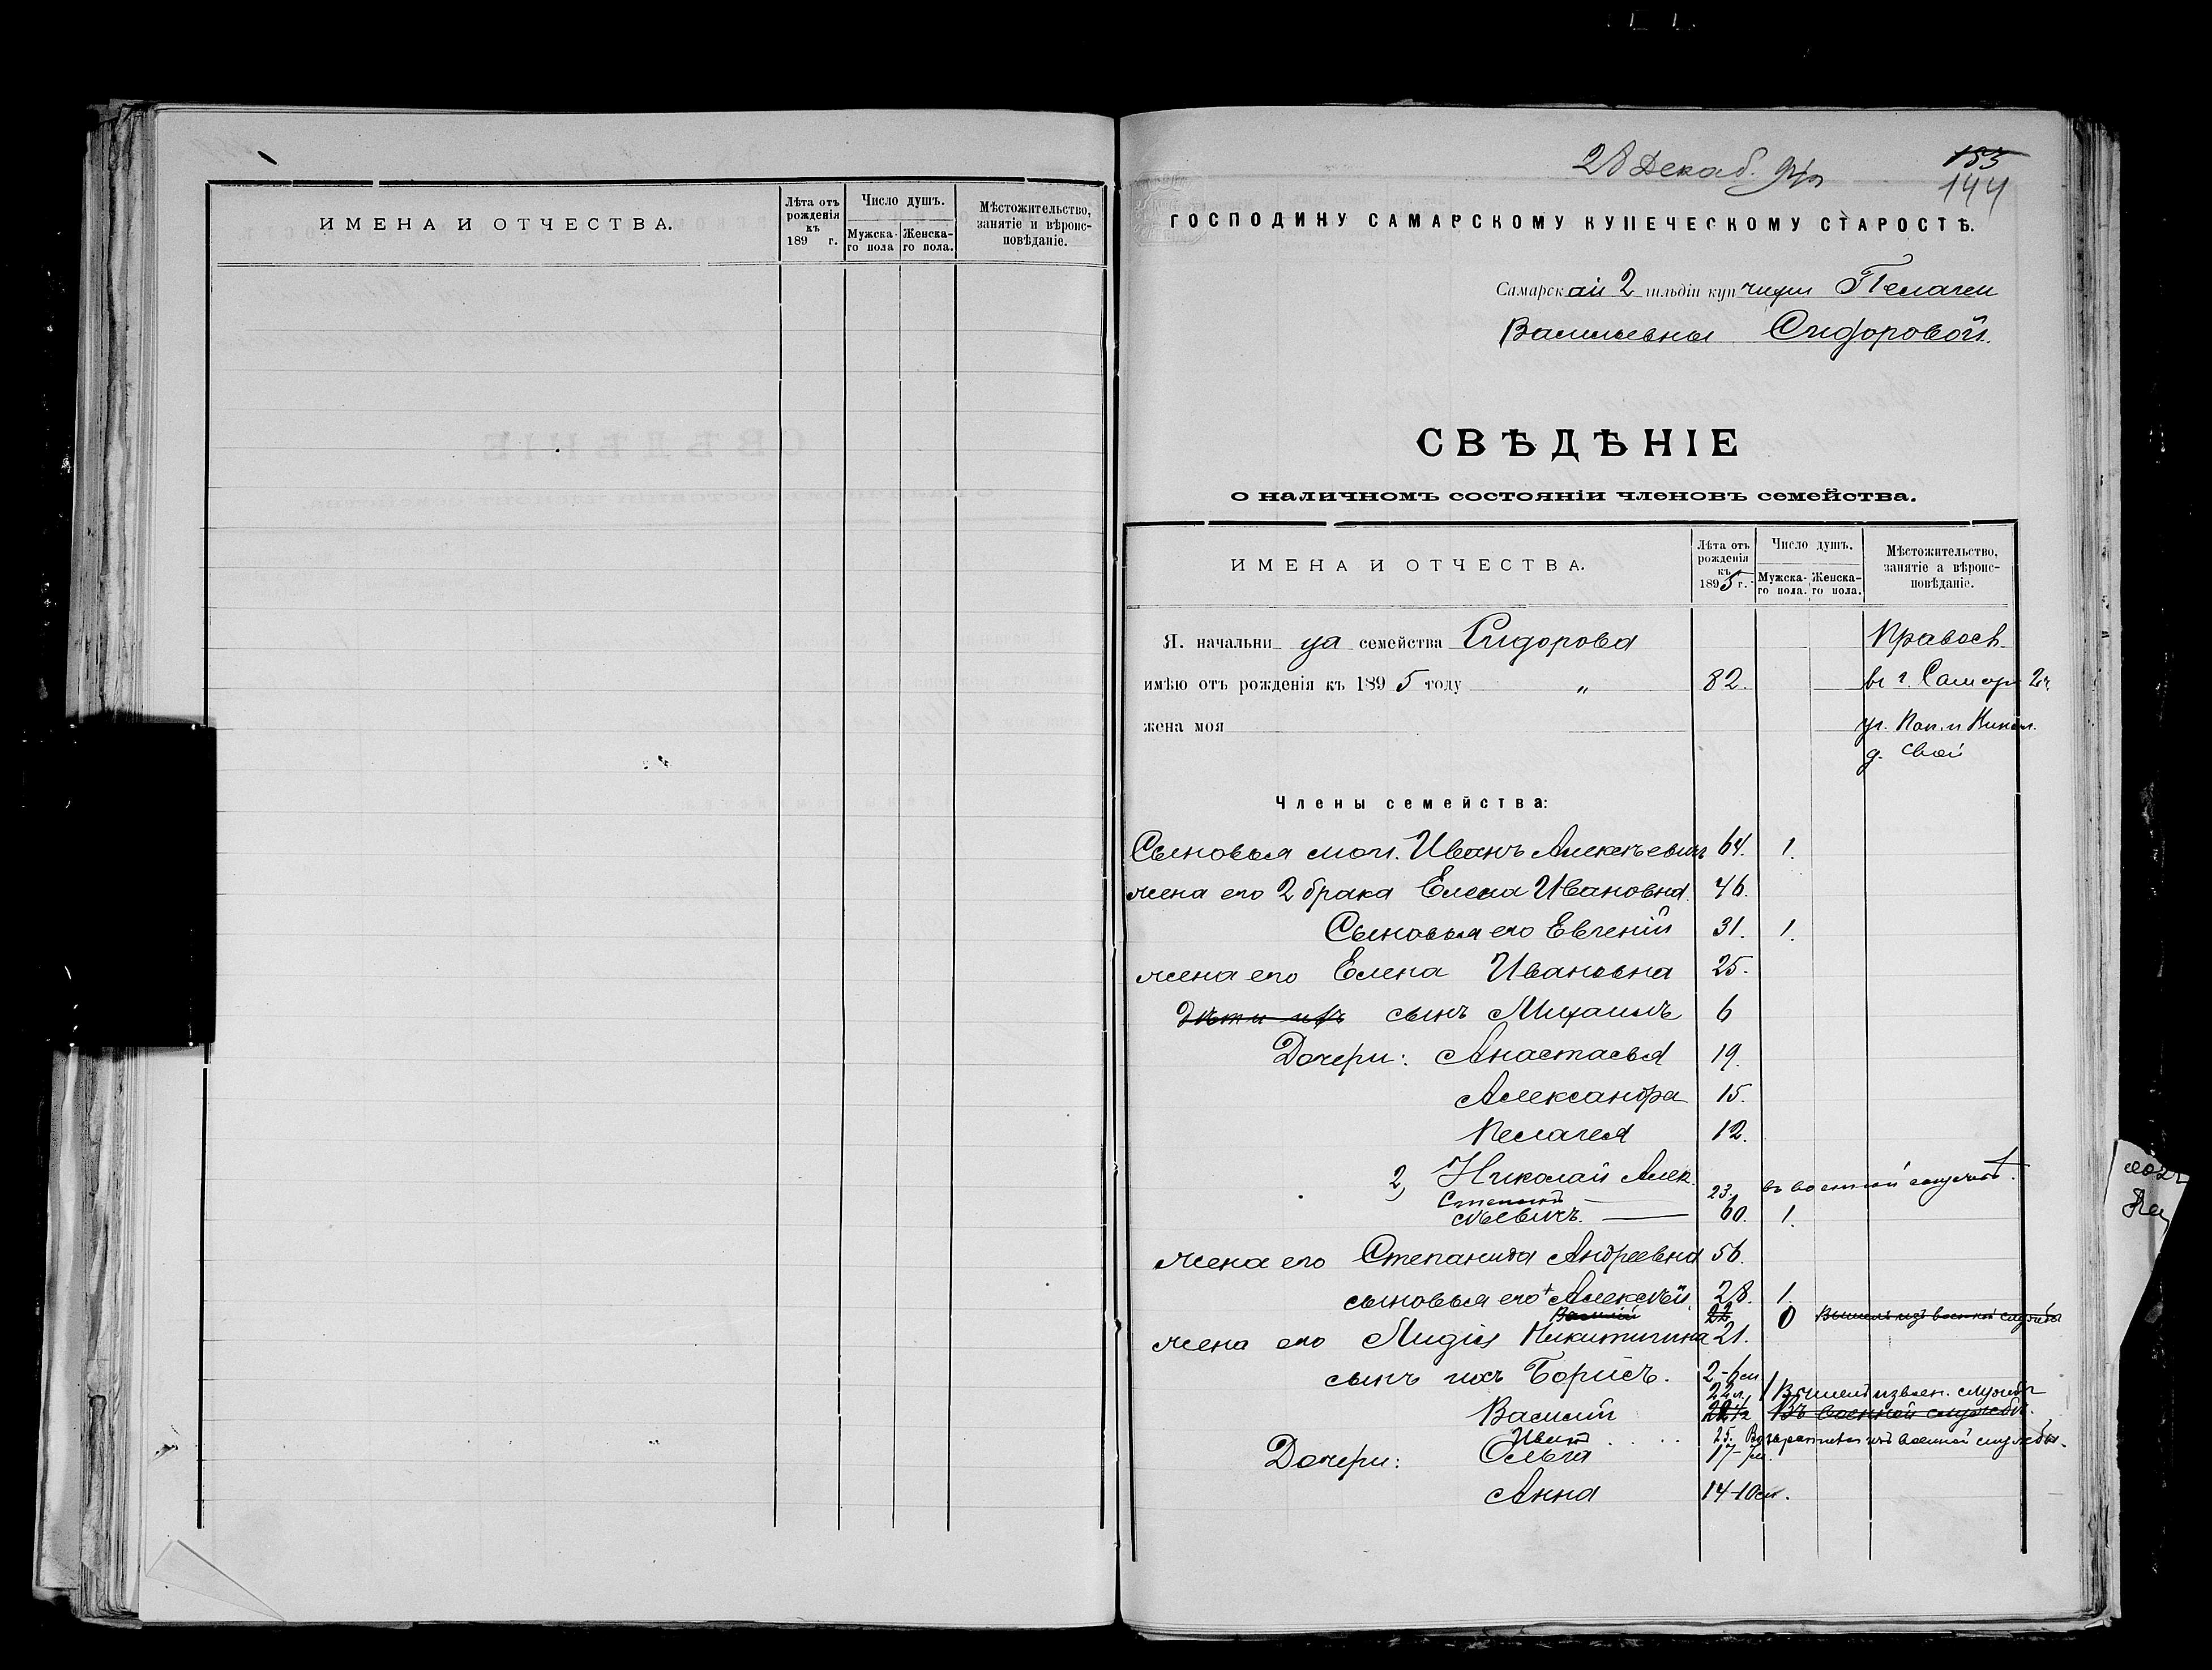 ИМЕНА И ОТЧЕСТВА.
Лѣта отъ рожденія къ 189 г.
Число душъ.
Мужска-го пола
Женска-го пола.
Мѣстожительство, занятіе и вѣроис-повѣданіе.
28 Декаб.
153
144
ГОСПОДИНУ САМАРСКОМУ КУПЕЧЕСКОМУ СТАРОСТѢ.
Самарской 2 гильдіи купчихи Пелагеи
Васильевны Сидоровой.
СВѢДѢНІЕ
о наличномъ состояніи членовъ семейства.
ИМЕНА И ОТЧЕСТВА.
Лѣта отъ рожденія къ 1895 г.
Число душъ.
Мужска-го пола.
Женска-го пола.
Мѣстожительство, занятіе а вѣроис-повѣданіе.
Я. начальница семейства Сидорова Правосл.
имѣю отъ рожденія къ 1895 году „ 82. въ г. Самарѣ 2 ч.
жена моя уг. Пан. и Никол.
д. свой
Члены семейства:
Сыновья мои. Иванъ Алексѣевичъ 64. 1.
жена его 2 брака Елена Ивановна 46.
Сыновья его Евгеній 31. 1.
жена его Елена Ивановна 25.
Дѣти ихъ сынъ Михаилъ 6
Дочери: Анастасья 19.
Александра 15.
Пелагея 12.
2, Николай Алек
Степанъ 23. въ военной службѣ.
сѣевичъ. 60. 1.
жена его Степанида Андреевна 56.
сыновья его + Алексѣй. 28. 1.
Василій 22 0 Вышелъ изъ военной службы
жена его Лидія Никитична 21.
сынъ ихъ Борисъ. 2-6 м
22 л. 1 Вышелъ изъ воен. службы
Василій Въ военной службѣ.
Иванъ 25. Возвратился изъ военной службы.
Дочери: Ольга 17
Анна 14-10 м.